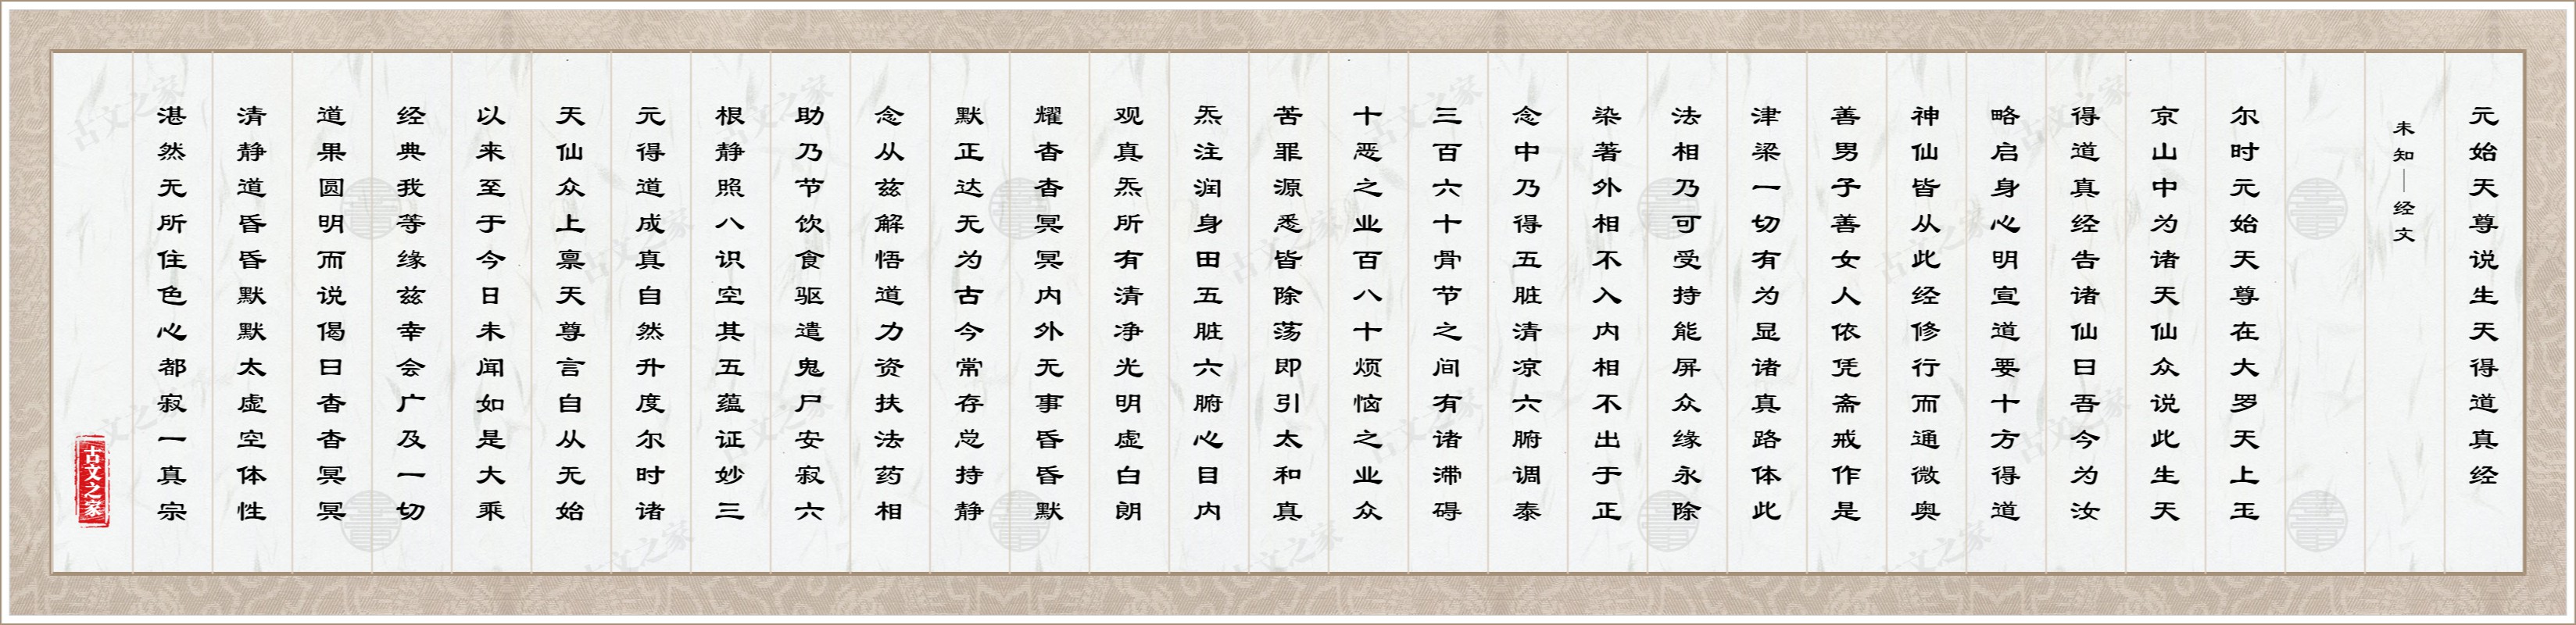 元始天尊说生天得道真经
未知｜经文
尔时元始天尊在大罗天上玉
京山中为诸天仙众说此生天
得道真经告诸仙曰吾今为汝
略启身心明宣道要十方得道
神仙皆从此经修行而通微奥
善男子善女人依凭斋戒作是
津梁一切有为显诸真路体此
法相乃可受持能屏众缘永除
染著外相不入内相不出于正
念中乃得五脏清凉六腑调泰
三百六十骨节之间有诸滞碍
十恶之业百八十烦恼之业众
苦罪源悉皆除荡即引太和真
炁注润身田五脏六腑心目内
观真炁所有清净光明虚白朗
耀杳杳冥冥内外无事昏昏默
默正达无为古今常存总持静
念从兹解悟道力资扶法药相
助乃节饮食驱遣鬼尸安寂六
根静照八识空其五蕴证妙三
元得道成真自然升度尔时诸
天仙众上禀天尊言自从无始
以来至于今日未闻如是大乘
经典我等缘兹幸会广及一切
道果圆明而说偈曰杳杳冥冥
清静道昏昏默默太虚空体性
湛然无所住色心都寂一真宗
古文之家